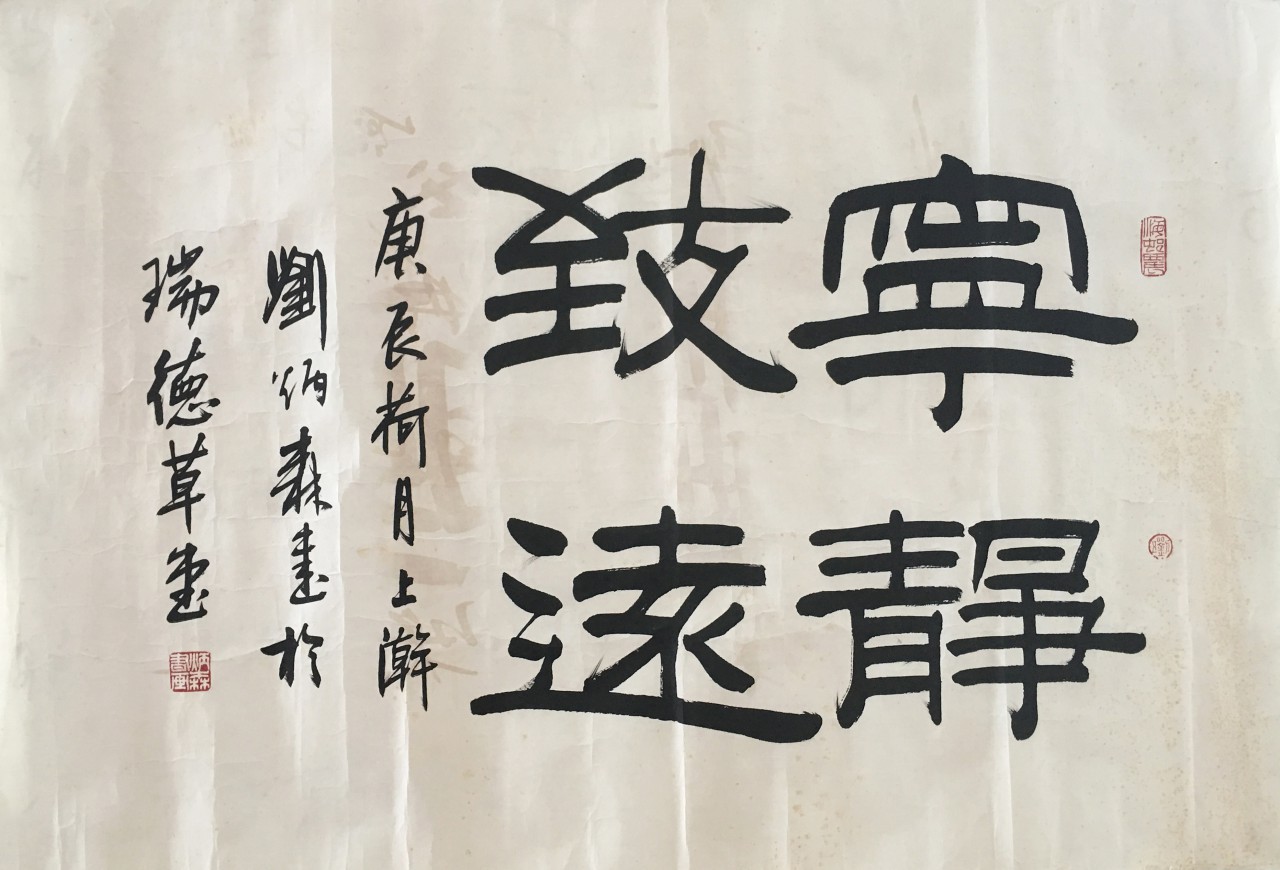 寧靜
致遠
庚辰荷月上澣
劉炳森書於
瑞德草堂
炳森書画